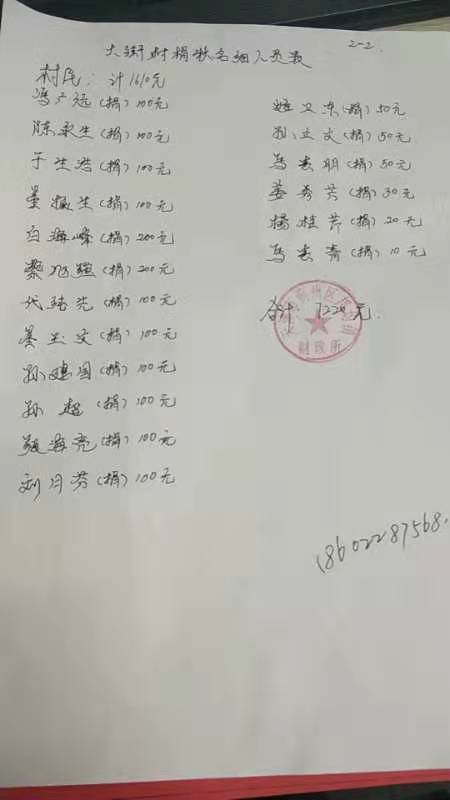 大街村捐款名细人员表
2-2.
村民：计1610元
冯广远(捐)100元
陈永生(捐)100元
于生浩(捐)100元
振生(捐)100元
白海峰(捐)200元
蔡旭(捐)200元
代(捐)100元
玉文(捐)100元
孙建国(捐)100元
孙超(捐)100元
张海亮(捐)100元
刘月芬(捐)100元
卫东(捐)50元
孙立文(捐)50元
马春明(捐)50元
姜秀芳(捐)30元
杨桂芹(捐)20元
马春青(捐)10元
合计：7220元.
州区
财政所
18602287568.